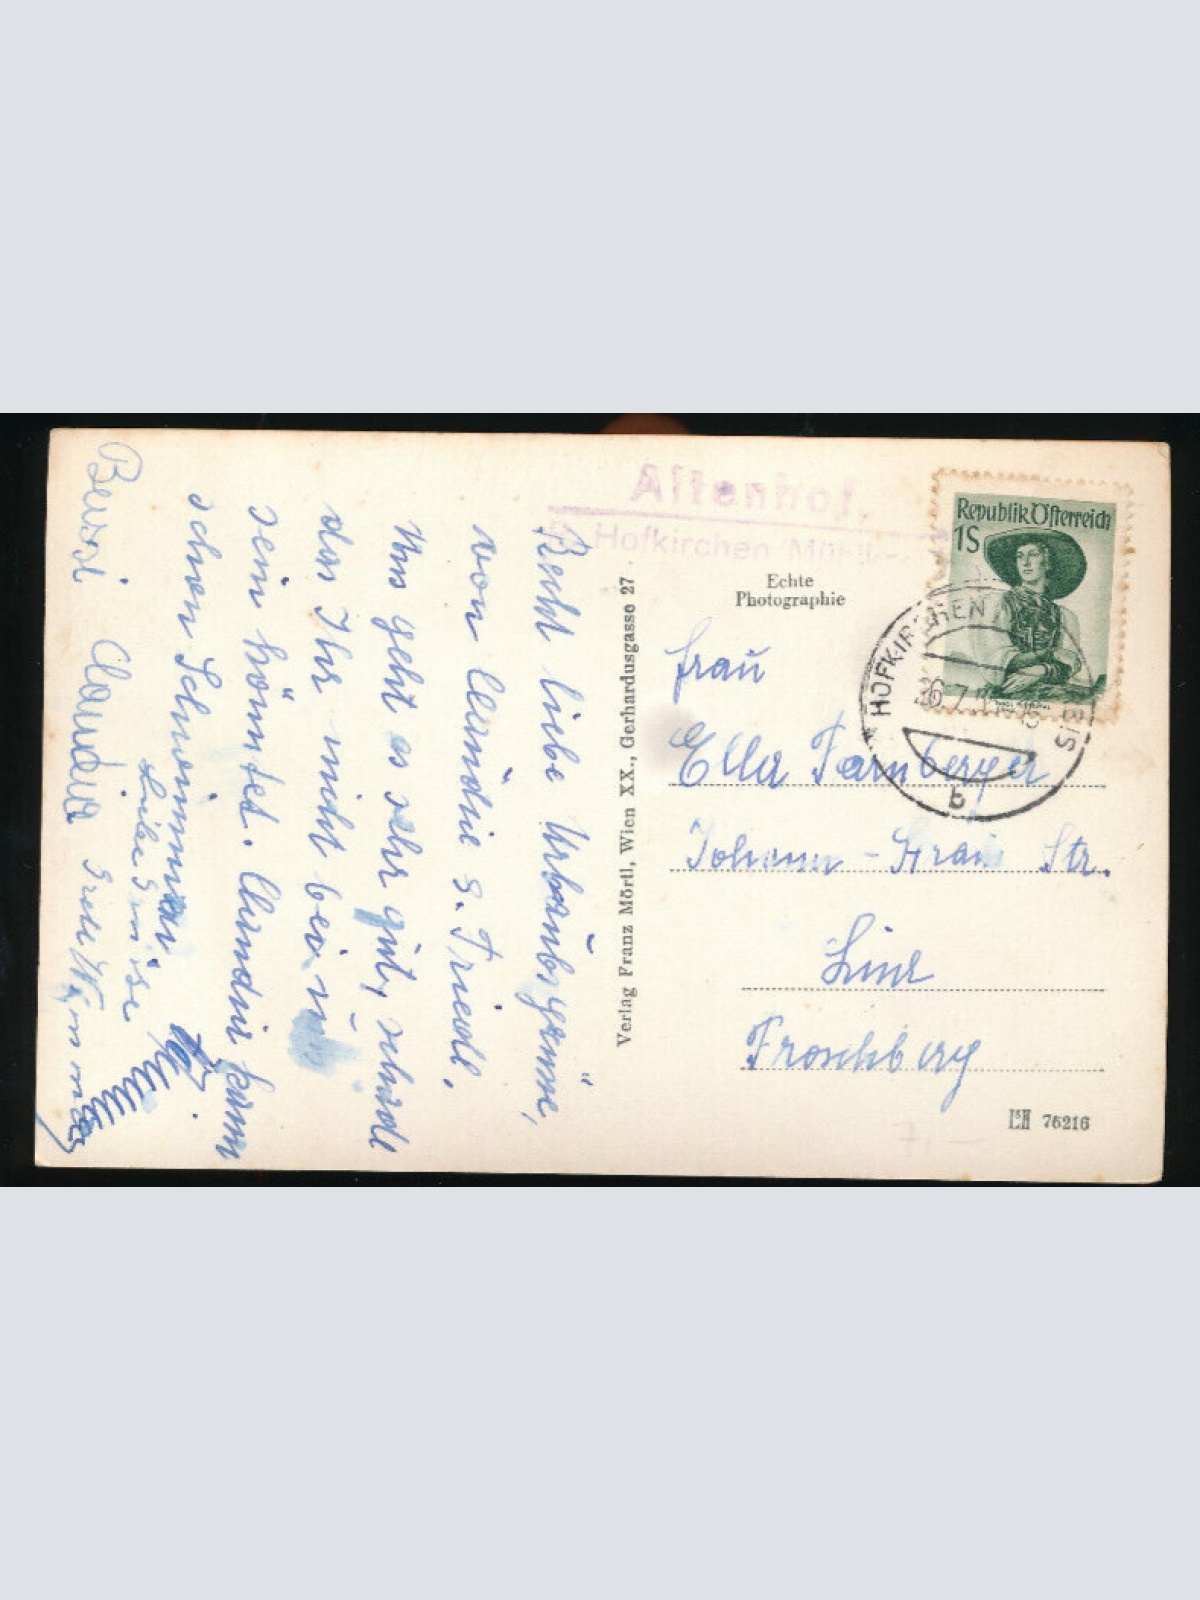 Altenhof.
Hofkirchen
Republik Österreich
1S
HOFKIRCHEN
26.7.
b
Echte
Photographie
Frau
Ella Farnberger
Johann - Str.
Linz
Froschberg
76216
Verlag Franz Mörtl, Wien XX., Gerhardusgasse 27
Recht liebe Urlaubsgrüsse,
von Claudia s. Friedl.
Uns geht es sehr gut, schade
das Ihr nicht bei uns
sein könntet. Claudia kann
schon Schwimmen
Liebe Grüsse
Bussi Claudia